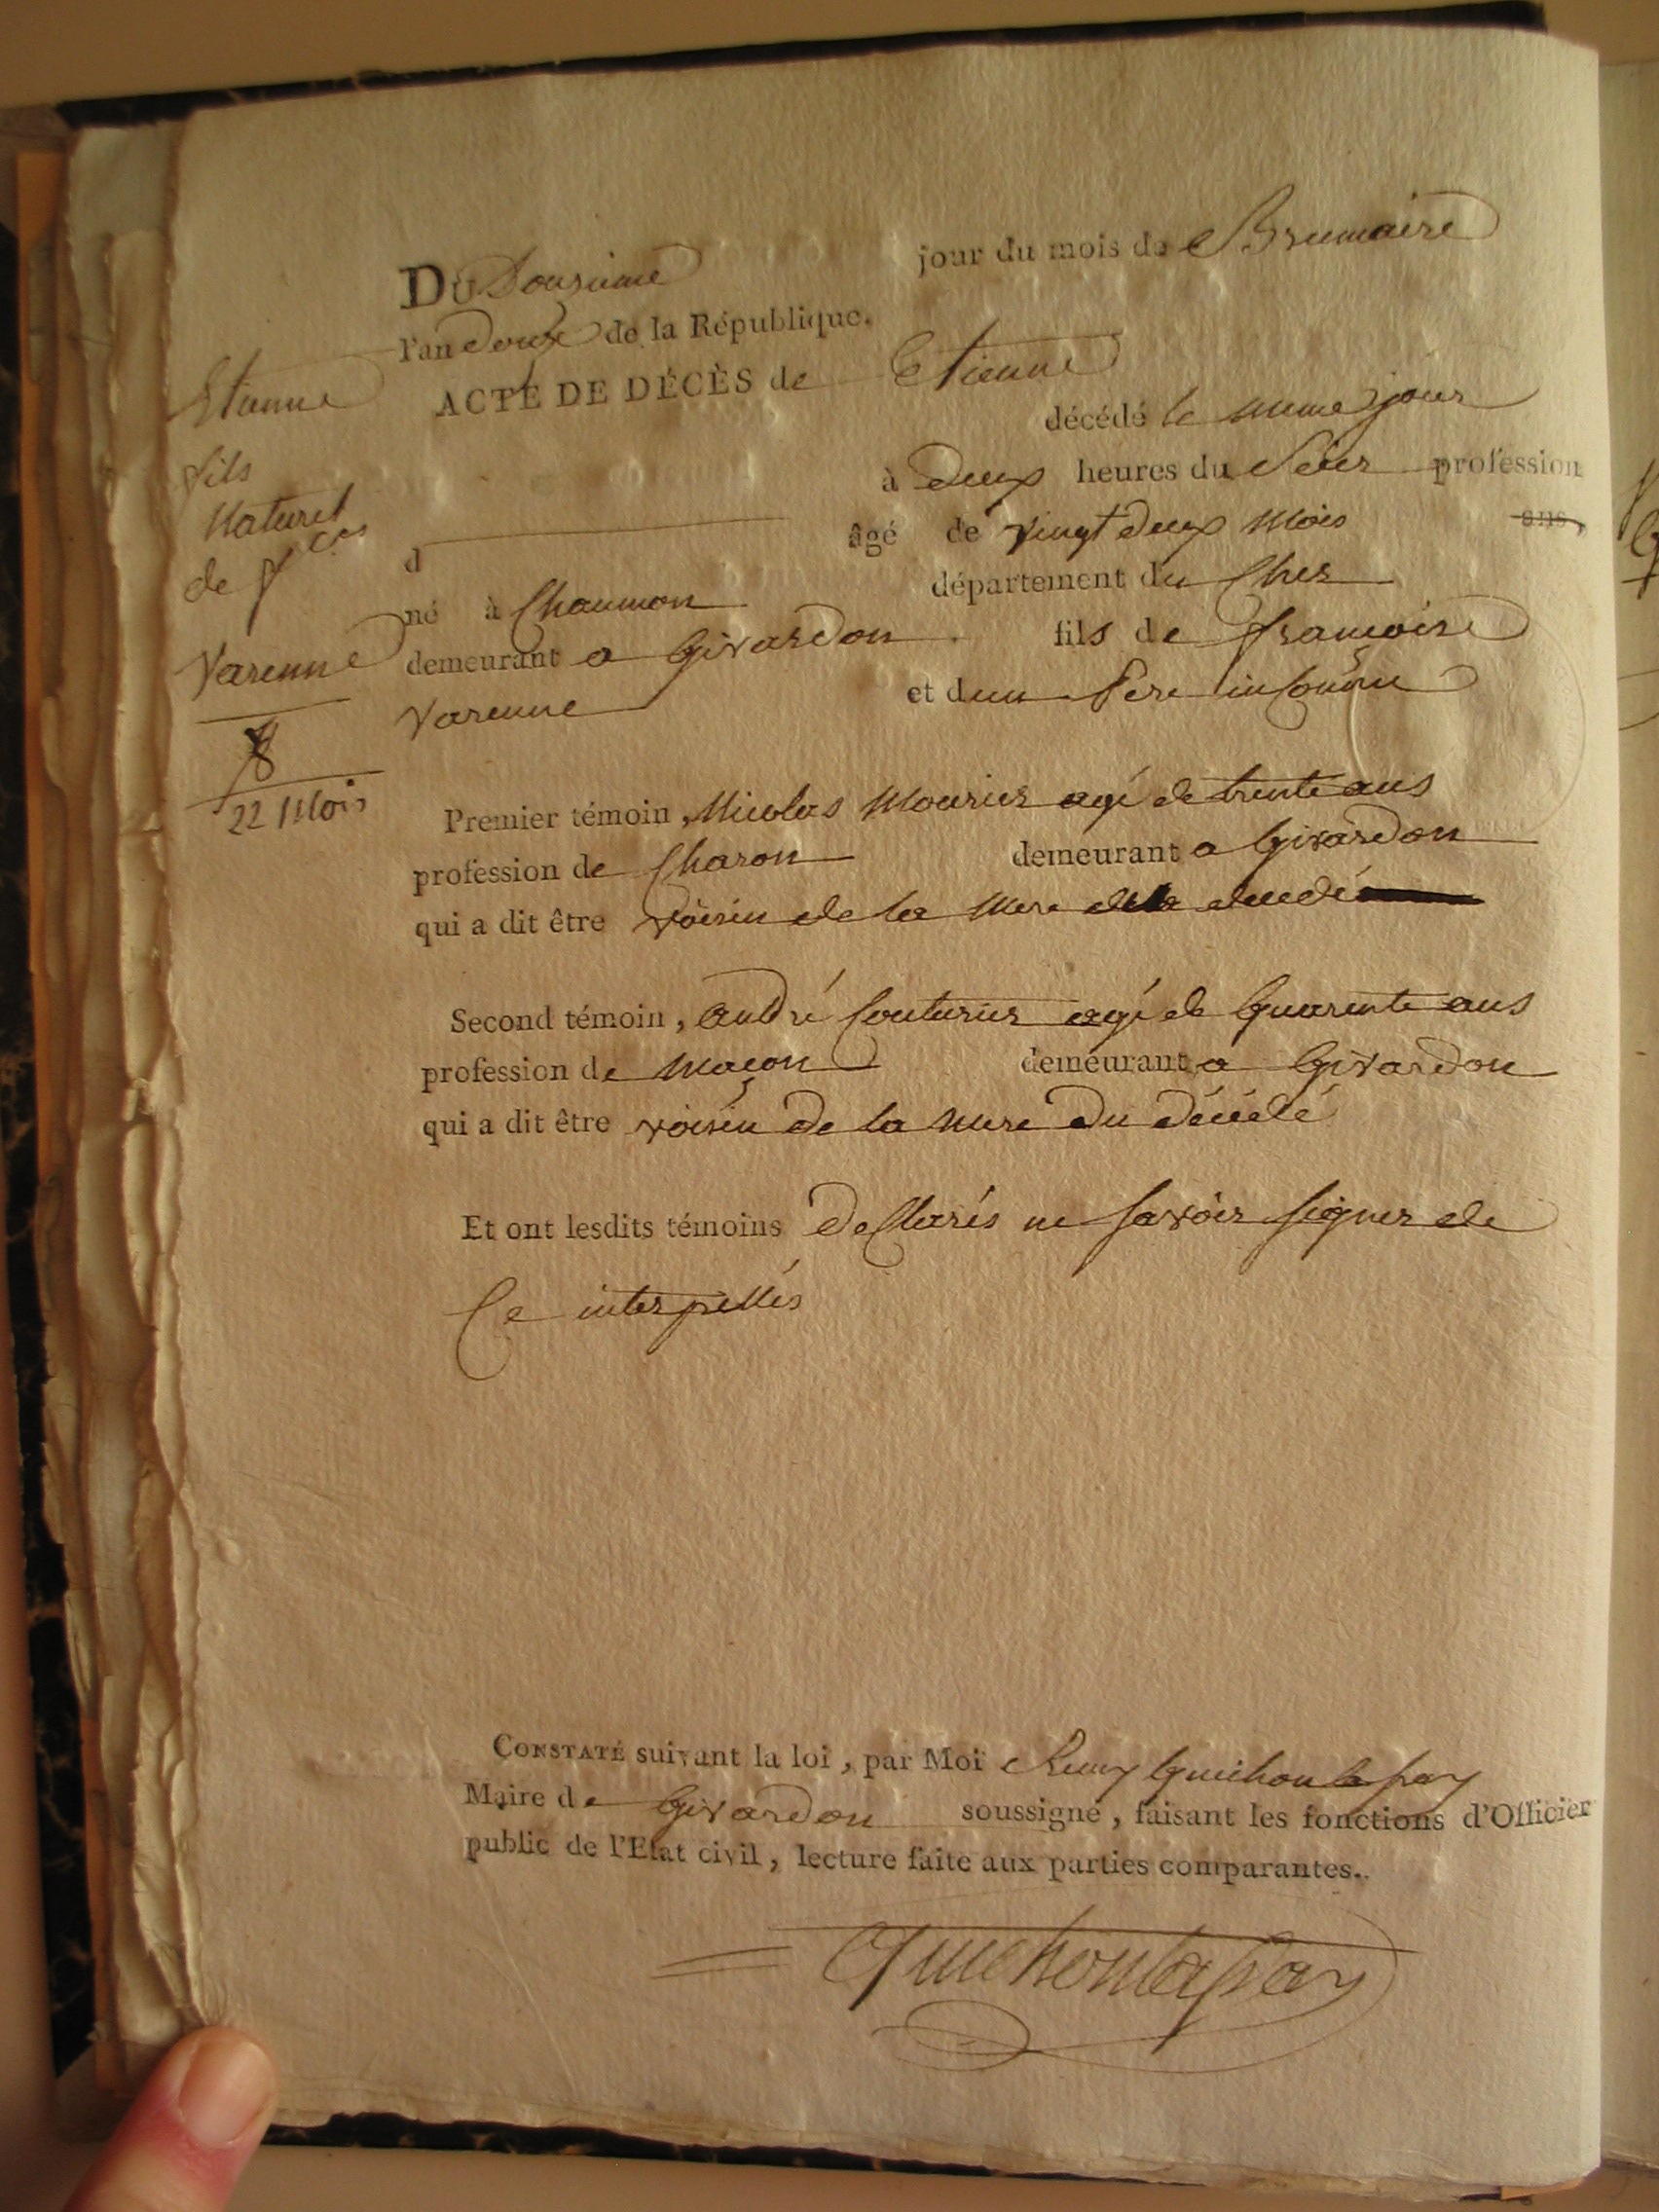 Du Douzieme jour du mois de Brumaire
l'an Douze de la République.
ACTE DE DÉCÈS de Etienne
décédé le meme jour
à Deux heures du Soir profession
d âgé de vingt deux mois ans,
né à Chaumon département du Cher
demeurant a Givardon fils de francoise
Varenne et dun Pere inconnu
Etienne
fils
Naturel
de fces
Varenne
8
22 Mois
Premier témoin, Nicolas Mourier agé de trente ans
profession de Charon demeurant a Givardon
qui a dit être voisin de la mere
Second témoin, André Couturier agé de Quarente ans
profession de macon demeurant a Givardon
qui a dit être voisin de la mere Du Décédé
Et ont lesdits témoins Declarés ne savoir signer de
Ce interpellés
CONSTATÉ suivant la loi, par Moi Remy Guichon la pray
Maire de Givardon soussigné, faisant les fonctions d'Officier
public de l'Etat civil, lecture faite aux parties comparantes.